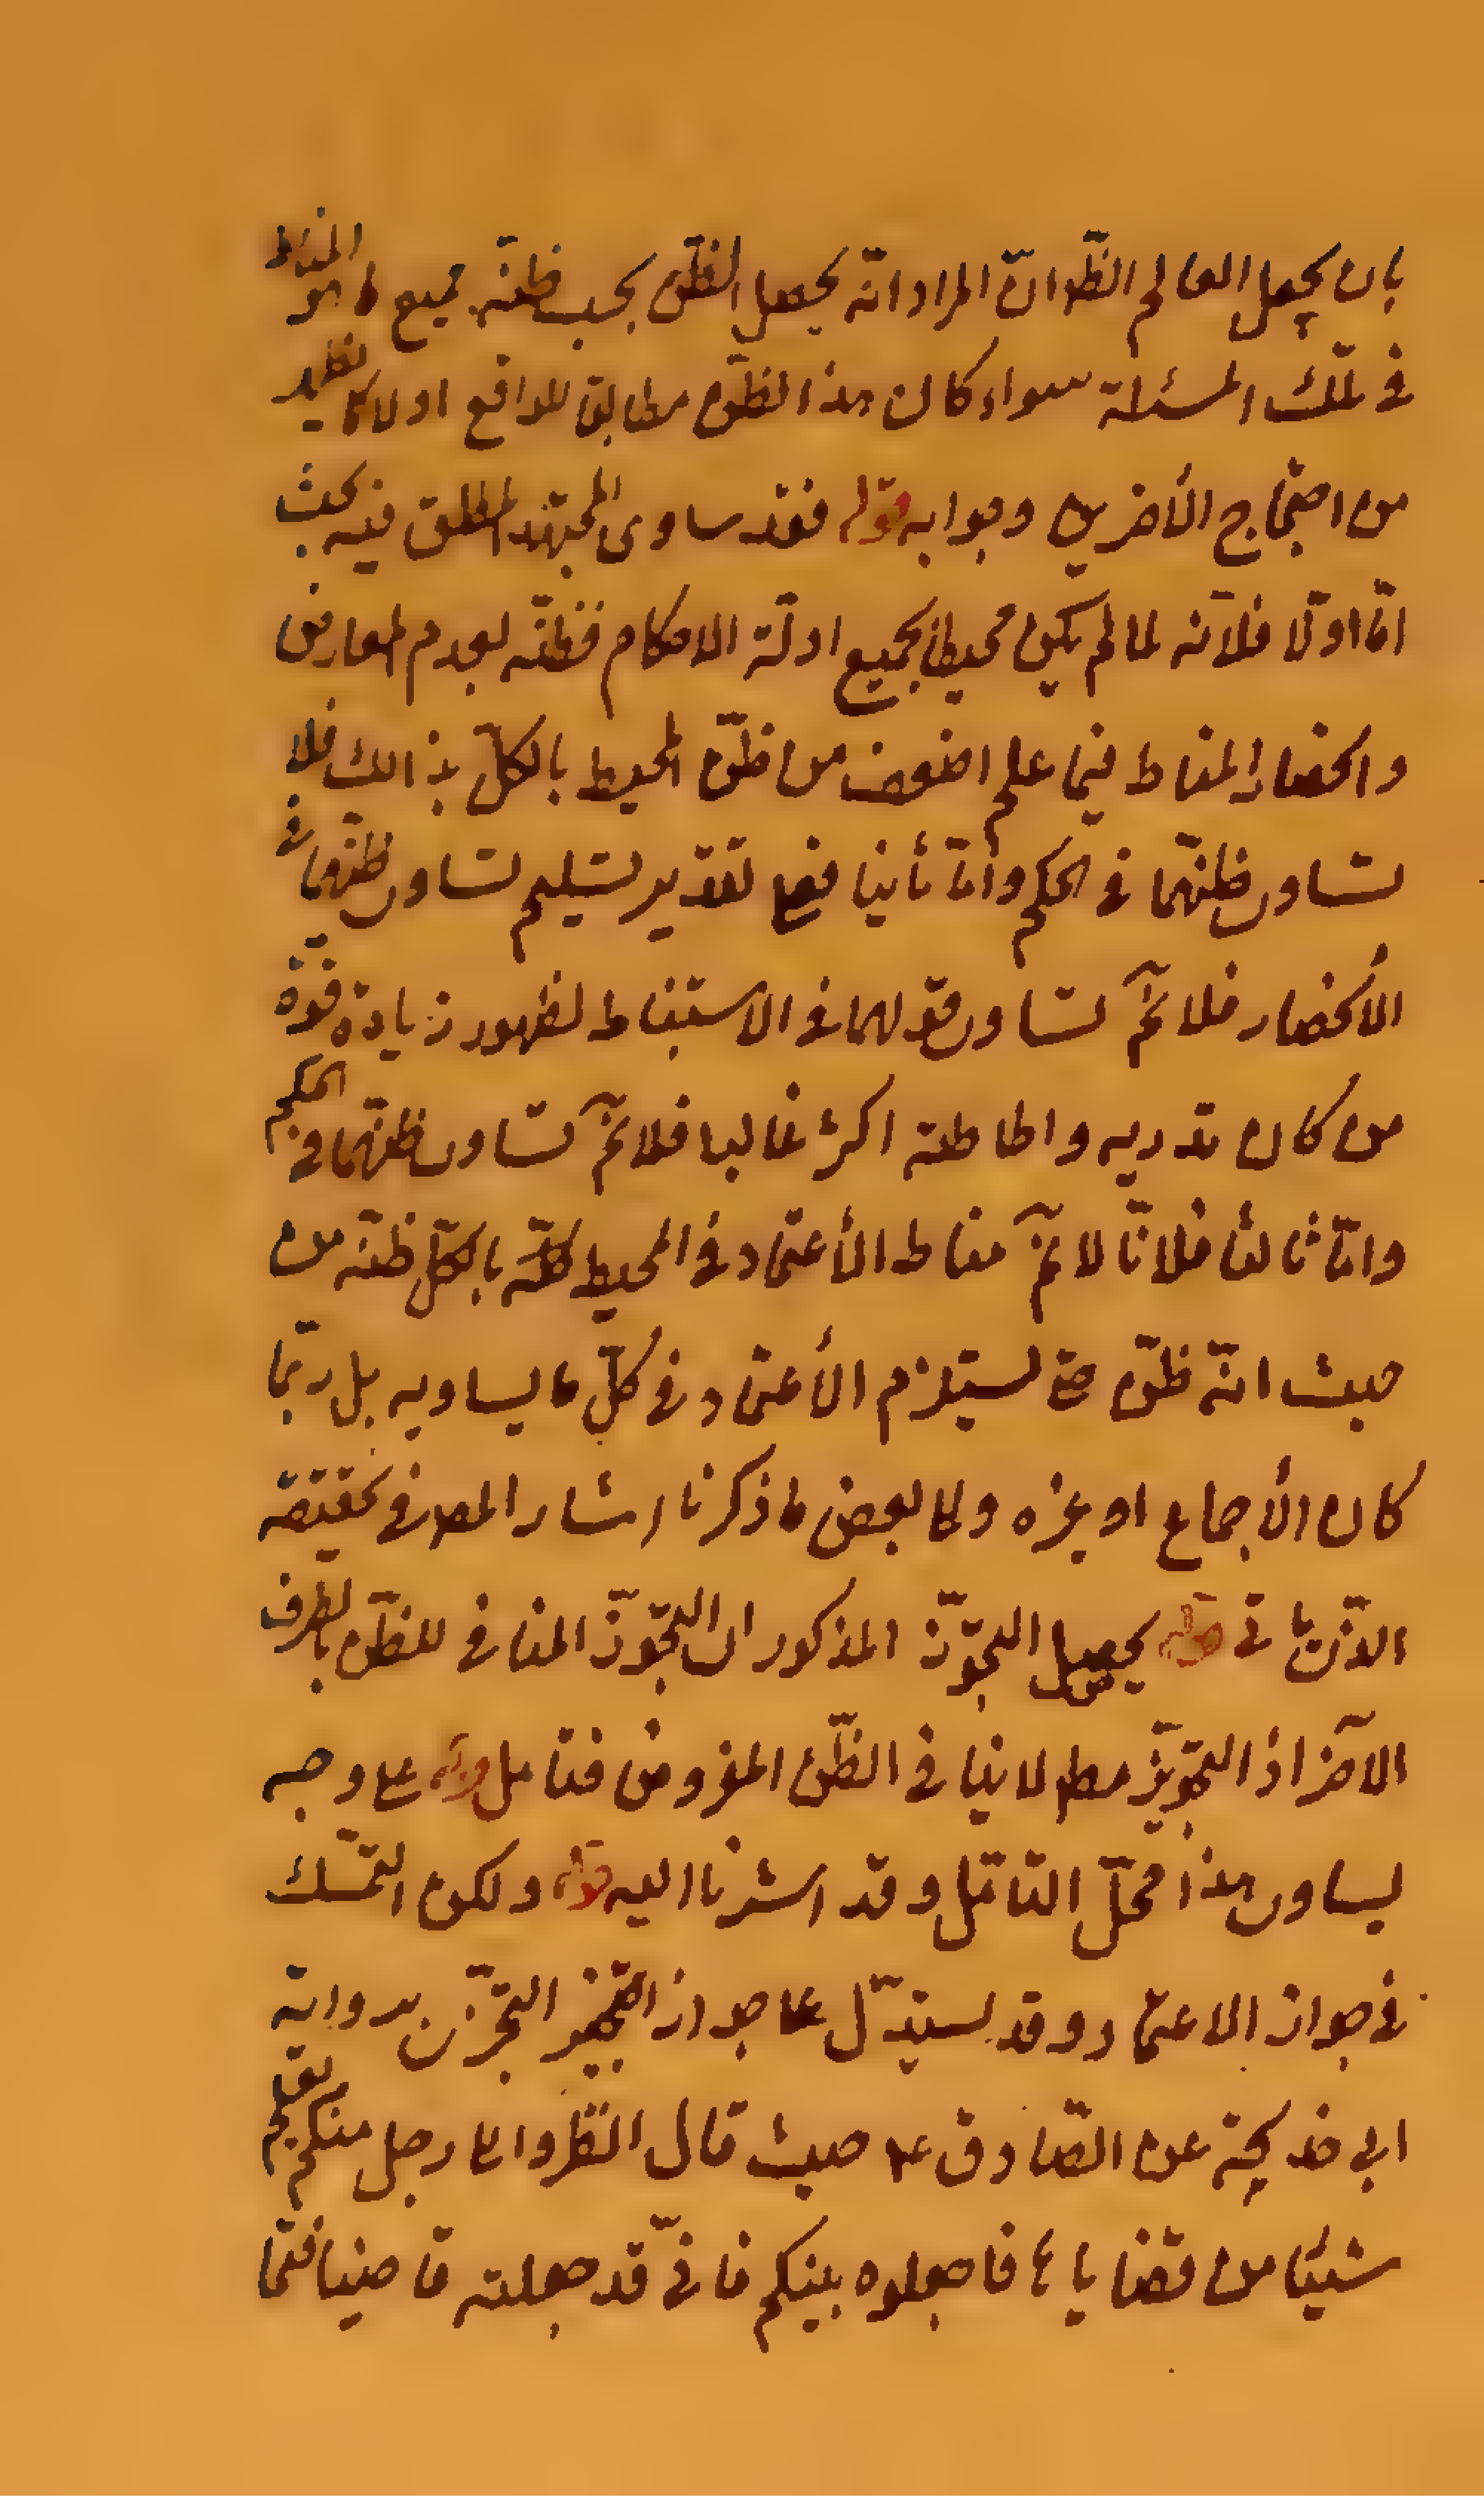 بان يحصل للعالم الظ ان المراد انه يحصل الظن بحسب ظنه بجميع ما هو المناط
في تلك المسئلة سواء كان هذا الظن مطابقا للواقع اولا كما يظهر
من احتجاج الأخرين وجوابه قوله فقد ساوى المجتهد المطلق فيه بحث
امّا اوّلا فلانّه لما لم يكن محيطا بجميع ادلّة الاحكام فظنّه بعدم المعارض
وانحصار المناط فيما علم اضعف من ظنّ المحيط بالكلّ بذالك فلا
تساوى ظنهما في الحكم وامّا ثانيا فعلى تقدير تسليم تساوى ظنّهما في
الأنحصار فلا نمّ تساوى قولهما في الاستنباط لظهور زيادة قوّة
من كان تدربه واحاطته اكثر غالبا فلا نمّ تساوى ظنهما في الحكم
وامّا ثالثا فلانّا لا نمّ مناط الأعتماد في المحيط بالكلّ ظنّه من
حيث انّه ظنّ حتى يستلزم الأعتماد في كلّ ما يساويه بل ربّما
كان الأجماع او غيره ولما لبعض ما ذكرنا اشار المص في تحقيقه
الذى ياتى قوله يحصل التجوّز المذكور اى التجوّز المنافى للظنّ بالطرف
الآخر اذ التجويز مط لا ينافى الظنّ المفروض فتامل قوله على وجه
يساوى هذا محلّ التامّل وقد اشرنا اليه قوله ولكن التمسّك
في جواز الاعتماد وقد يستدّل على جواز التجزى برواية
ابى خديجة عن الصّادق ع حيث قال انظروا الى رجل منكم يعلم
شيئا من قضايانا فاجعلوه بينكم فانّى قد جعلته قاضيا فتحا